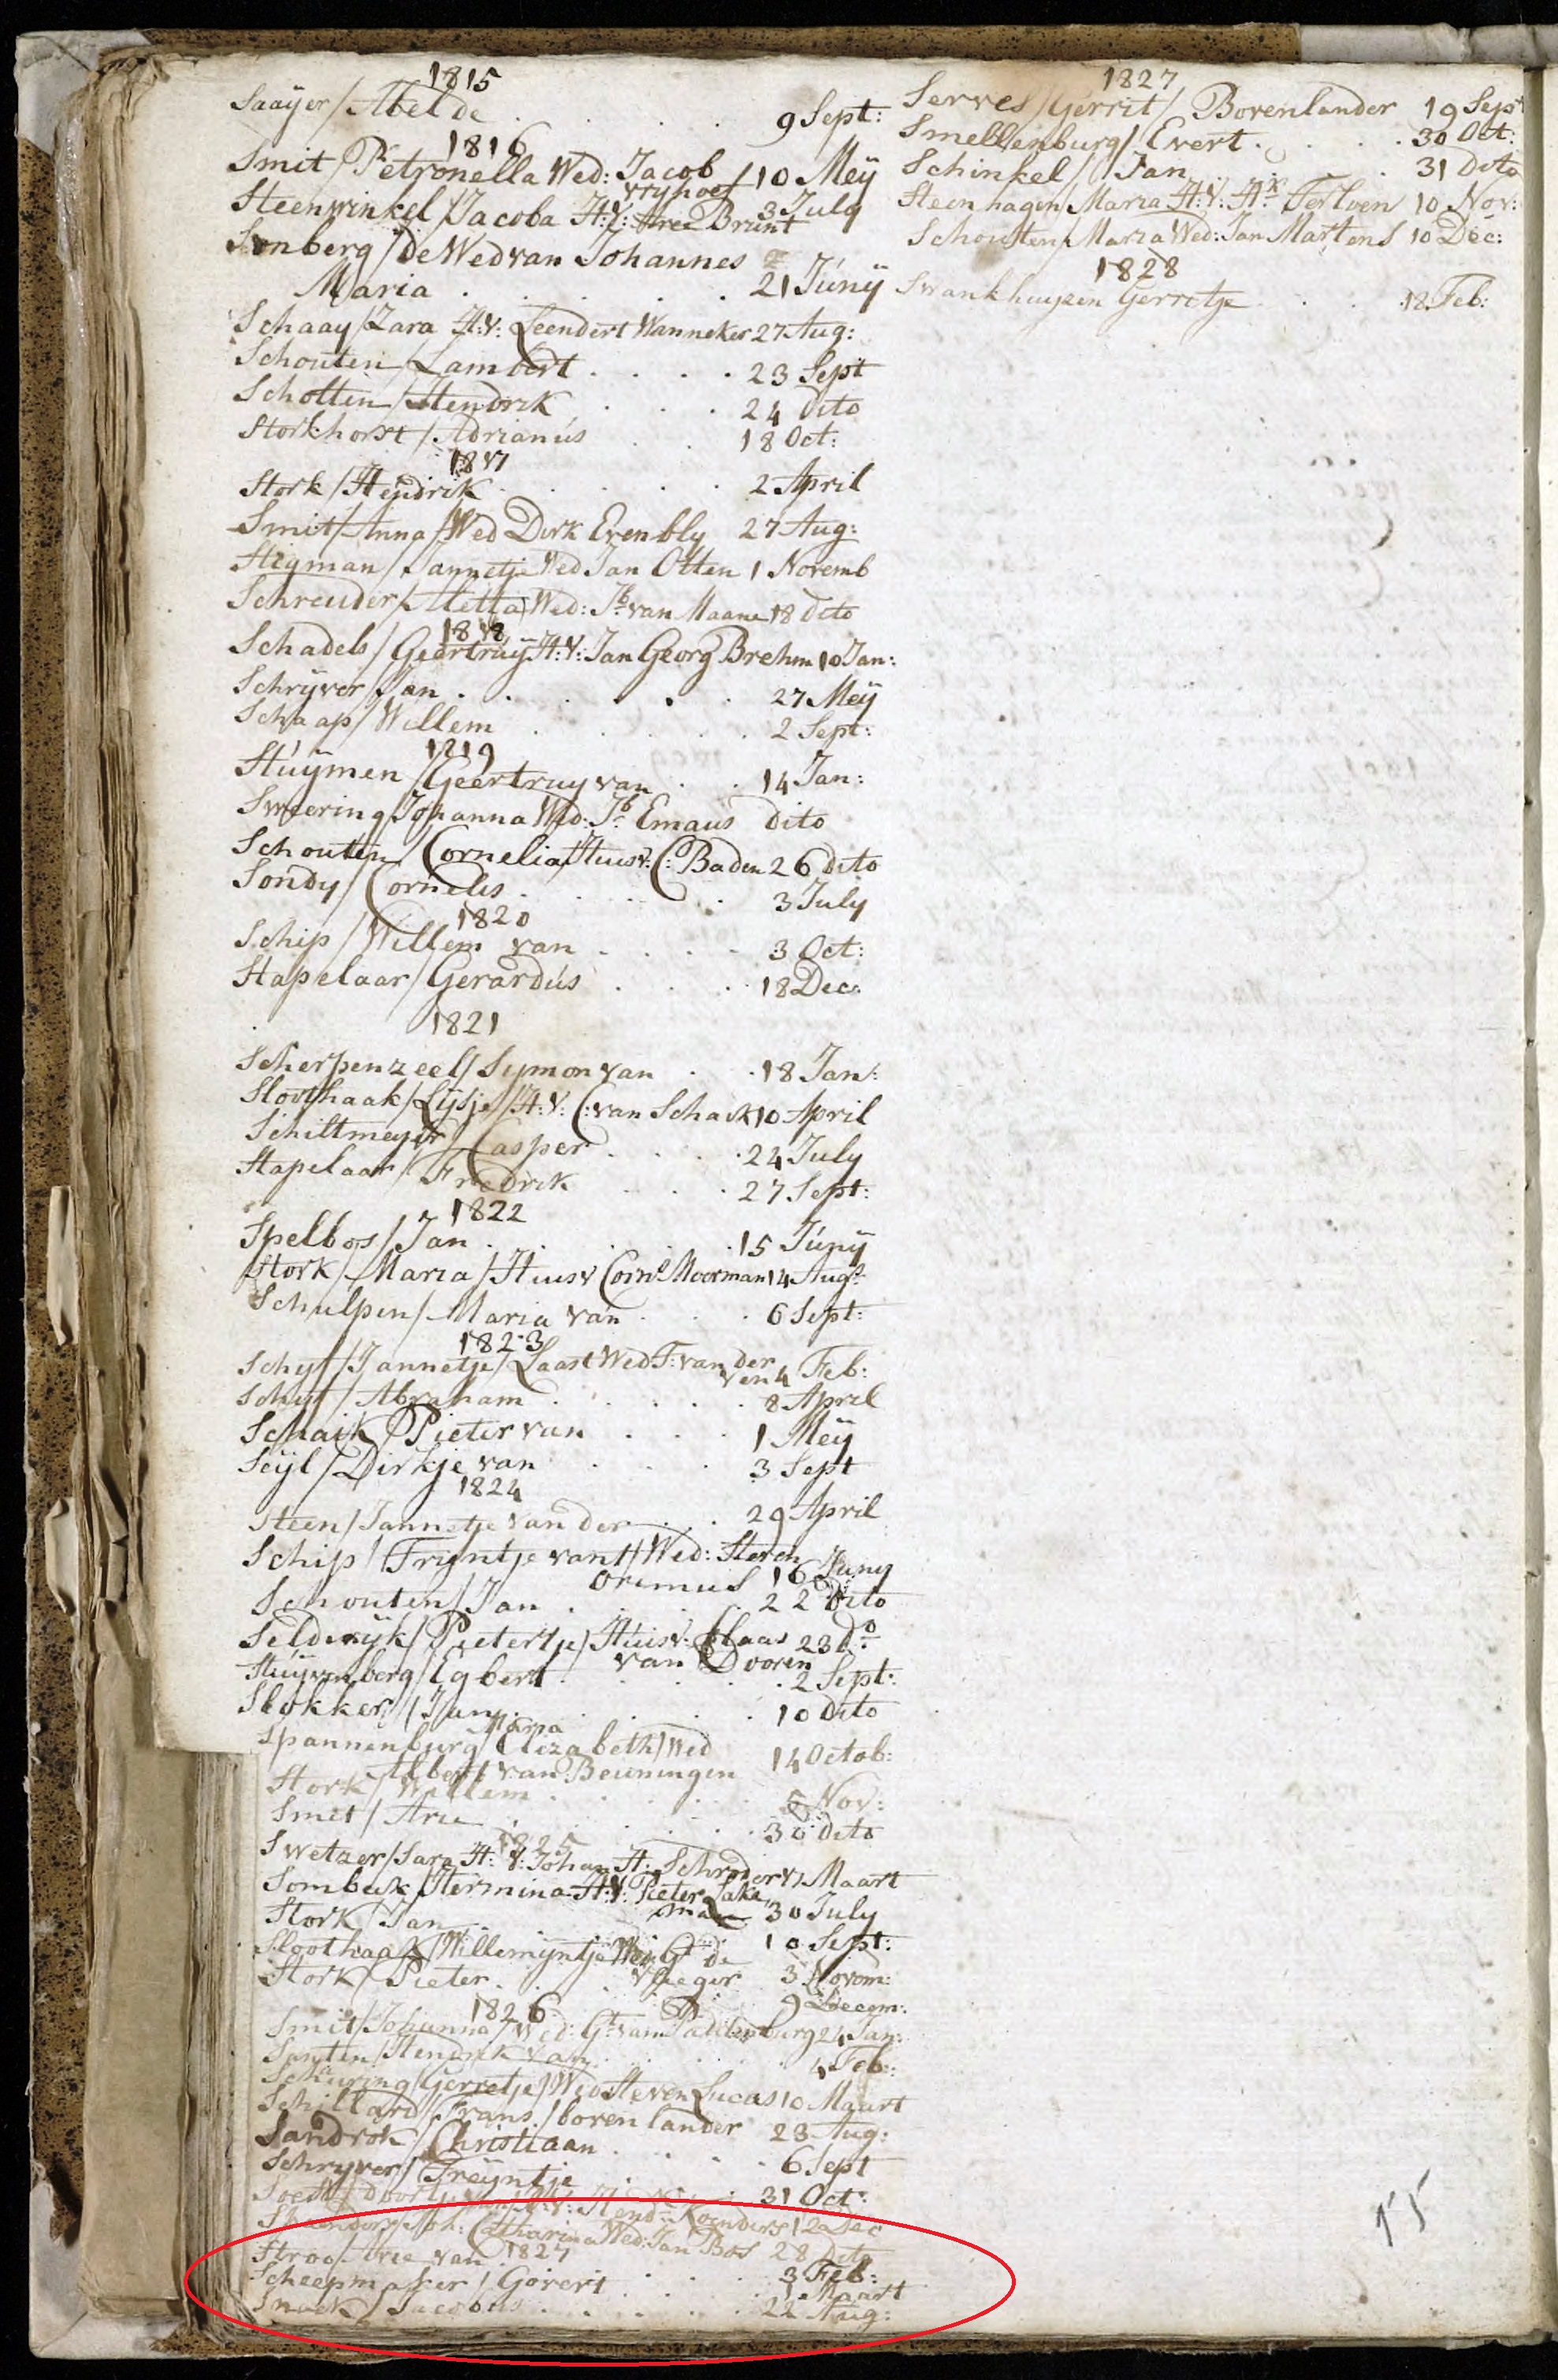 1815
Saaÿer / Abel de . . . . 9 Sept:
1816
Smit / Petronella Wed: Jacob
vryhoef / 10 Meÿ
Steenwinkel / Jacoba H:V: Aree Brunt 3 July
/ de Wed van Johannes
Maria . . . . . 21 Junÿ
Schaay / Zara H:V: Leendert Wanneker 27 Aug:
Schouten / Lambert . . . . 23 Sept
Scholten / Hendrik . . . 24 dito
Storkhorst / Adrianus . . 18 Oct:
1817
Stork / Hendrik . . . . . 2 April
Smit / Anna / Wed Dirk Evenbly 27 Aug:
Stegman / Jannetje Wed Jan Otten 1 Novemb
Schreuder / Aletta Wed: Jb van Maane 18 dito
1818
Schadels / Geertruÿ H:V: Jan Georg Brehm 10 Jan:
Schryver / Jan . . . . . . 27 Meÿ
Schaap / Willem . . . . . 2 Sept:
1819
Stuÿmen / Geertruy van . . 14 Jan:
Sweering Johanna Wed: Jb Emaus dito
Schouten / Cornelia / Huisv: C: Baden 26 dito
Sondy / Cornelis . . . . . 3 July
1820
Schip / Willem van . . . . 3 Oct:
Stapelaar / Gerardus . . . 18 Dec:
1821
Scherpenzeel / Symon van . . 18 Jan:
Sloothaak / Lijsje / H:V: C: van Schaik 10 April
Schiltmeyer / Casper . . . . 24 July
Stapelaar / Fredrik . . . 27 Sept:
1822
Spelbos / Jan . . . . . 15 Junÿ
Stork / Maria / Huisv Corns Moorman 14 Augs:
Schulpen / Maria van . . . 6 Sept:
1823
Schyf / Jannetje / Laast Wed F: van der
Ven 4 Feb:
Schyf / Abraham . . . . . 8 April
Schaik / Pieter van . . . 1 Meÿ
Seÿl / Dirkje van . . . 3 Sept
1824
Steen / Jannetje van der . . . 29 April
Schip / Tryntje van / Wed: Steven
Oremus 16 Juny
Schouten / Jan . . . . . 22 dito
Seldwyk / Pietertje / Huisv: Klaas 23 do
van Dooren
Stuÿvenberg / Egbert . . . . . 2 Sept:
Slokker / Jan . . . . . 10 dito
Maria
Spannenburg / Elizabeth / Wed
Albert van Beuningen 14 Octob:
Stork / Willem . . . . . Nov:
Smit / Arie . . . . . 30 dito
1825
Swetzer / Sara H:V: Johan H: Schroder 17 Maart
Sombeek Hermina H:V: Pieter Lake
man 30 July
Stork / Jan . . 10 Sept:
Sloothaak / Willemyntje Wed Gt de
Vleeger 3 Novem:
Stork / Pieter . . . 9 Decem:
1826
Smit / Johanna / Wed: Gt van Paddenburg 24 Jan:
Santen / Hendrik van . . . . . 4 Feb:
Schuring / Gerretje / Wed Steven Lucas 10 Maart
Schillard / Frans / bovenlander 23 Aug:
Sandrok / Christiaan . . . . 6 Sept
Schryver / Treÿntje . . . 31 Oct:
H:V: Hendk Koenders 12 Dec
Joh: Catharina Wed: Jan Bos 28 dito
1827
Stroo Arie van . . . . 3 Feb:
Scheepmaker / Govert . . . 1 Maart
Snoek / Jacobus . . . . . 22 Aug:
1827
Serves / Gerrit / Bovenlander 19 Sept
Smellenburg / Evert . . . . 30 Oct:
Schinkel / Jan . . . 31 dito
Steenhagen / Maria H:V: Hk Terloen 10 Nov:
Schouten / Maria Wed: Jan Martens 10 Dec:
1828
Swankhuyzen Gerretje . . . 12 Feb:
55